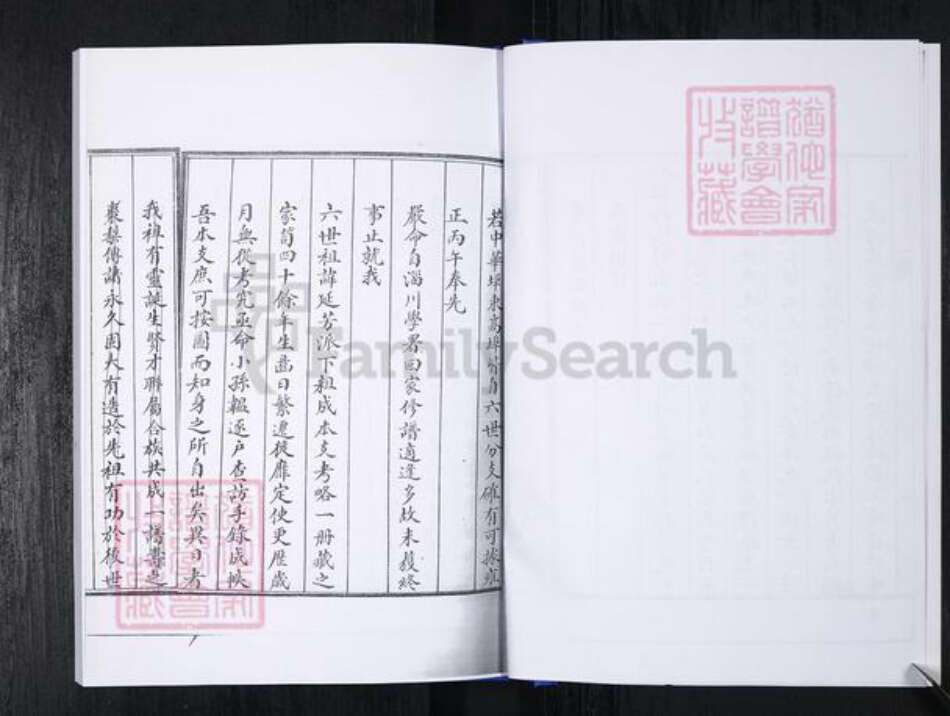 若中華埠東高埠皆自六世分支確有可據雍
正丙午奉先
嚴命自淄川學署回家修譜適逢多故未獲終
事止就我
六世祖諱延芳派下輯成本支考略一冊藏之
家笥四十餘年生齒日繁遷徙靡定使更歷歲
月無從考究亟命小孫韞逐戶查訪手錄成帙
吾本支庶可按圖而知身之所自出矣異日者
我祖有靈誕生賢才聯屬合族共成一譜壽之
棗棃傳諸永久固大有造於先祖有功於後世
猶他家
譜學會
收藏
FamilySearch
猶他家
譜學會
收藏